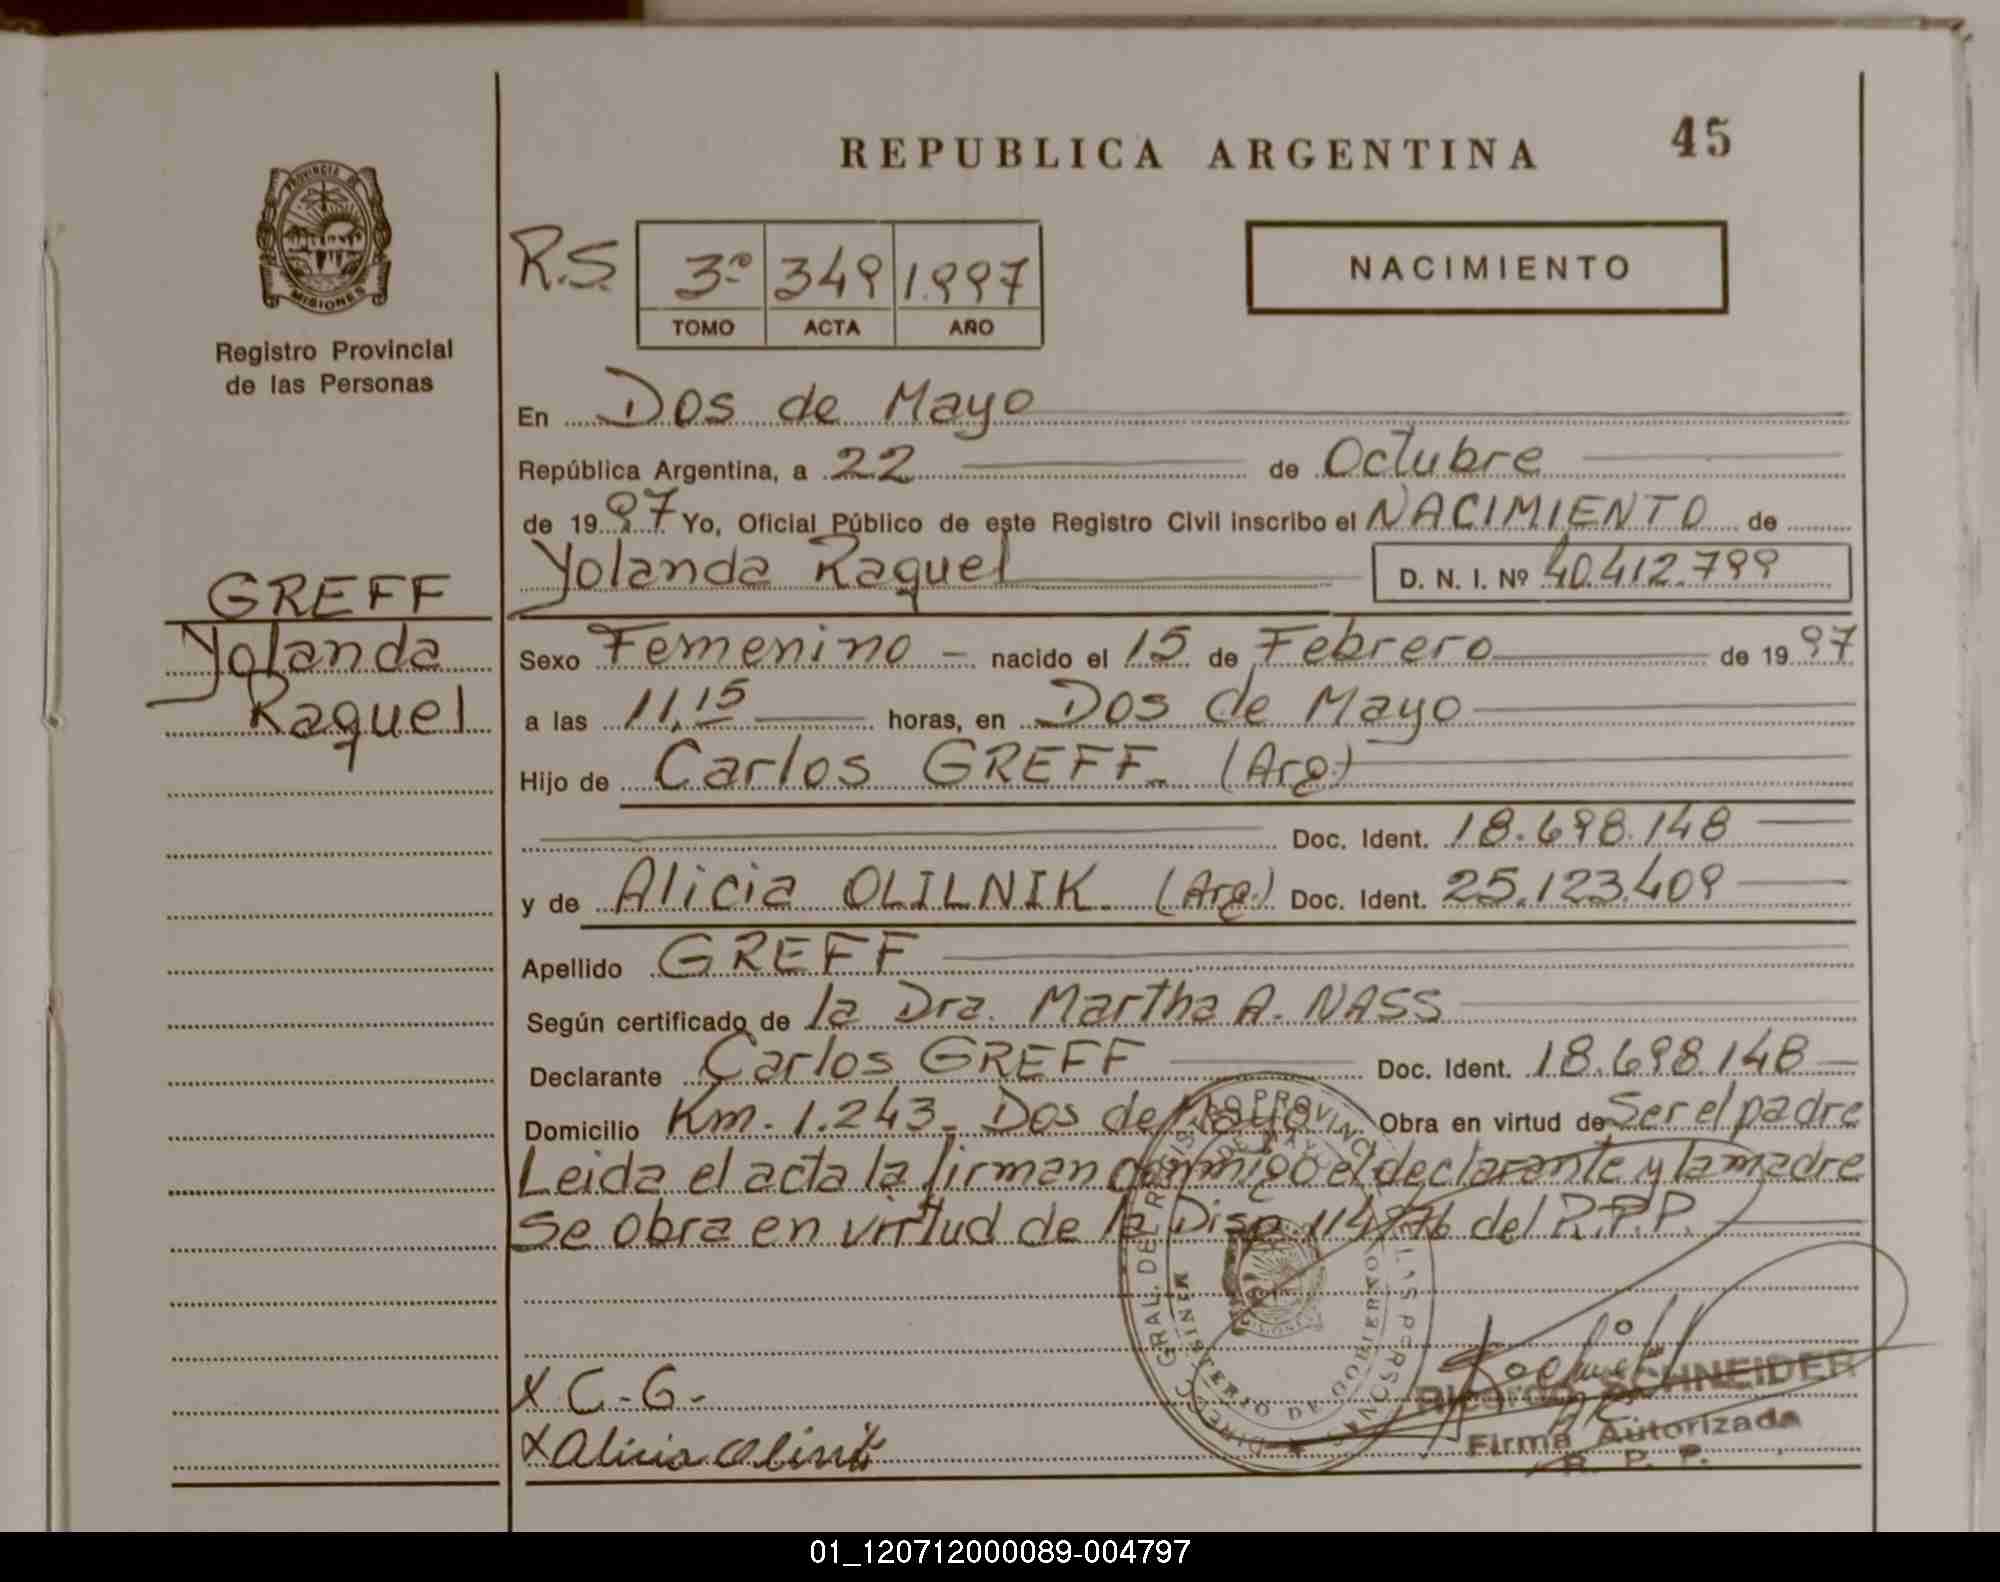 REPUBLICA ARGENTINA
45
PROVINCIA DE
MISIONES
Registro Provincial
de las Personas
R.S.
3º 349 1.997
TOMO ACTA AÑO
NACIMIENTO
En Dos de Mayo
República Argentina, a 22 de Octubre
de 1997 Yo, Oficial Público de este Registro Civil inscribo el NACIMIENTO de
Yolanda Raquel D. N. I. Nº 40.412.799
GREFF
Yolanda
Raquel
Sexo Femenino - nacido el 15 de Febrero de 1997
a las 11,15 horas, en Dos de Mayo
Hijo de Carlos GREFF. (Arg.)
Doc. Ident. 18.698.148
y de Alicia OLILNIK. (Arg.) Doc. Ident. 25.123.409
Apellido GREFF
Según certificado de la Dra. Martha A. NASS
Declarante Carlos GREFF Doc. Ident. 18.698.148
Domicilio Km. 1.243 - Dos de Mayo Obra en virtud de Ser el padre
Leida el acta la firman conmigo el declarante y la madre
Se obra en virtud de la Disp. 114/76 del R.P.P.
DIRECC. GRAL. DEL REGISTRO PROVINCIAL DE LAS PERSONAS
MINISTERIO DE GOBIERNO
X C - G -
X Alicia
Ricardo SCHNEIDER
Firma Autorizada
R. P. P.
01_120712000089-004797